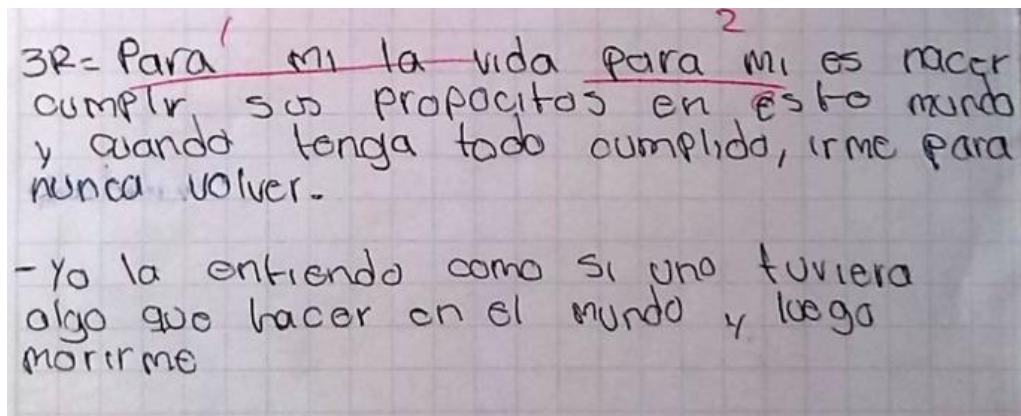 1 2
3R= Para mi la vida para mi es nacer
cumplir sus propocitos en esto mundo
y cuando tenga todo cumplido, irme para
nunca volver.
- Yo la entiendo como si uno tuviera
algo que hacer en el mundo y luego
morirme